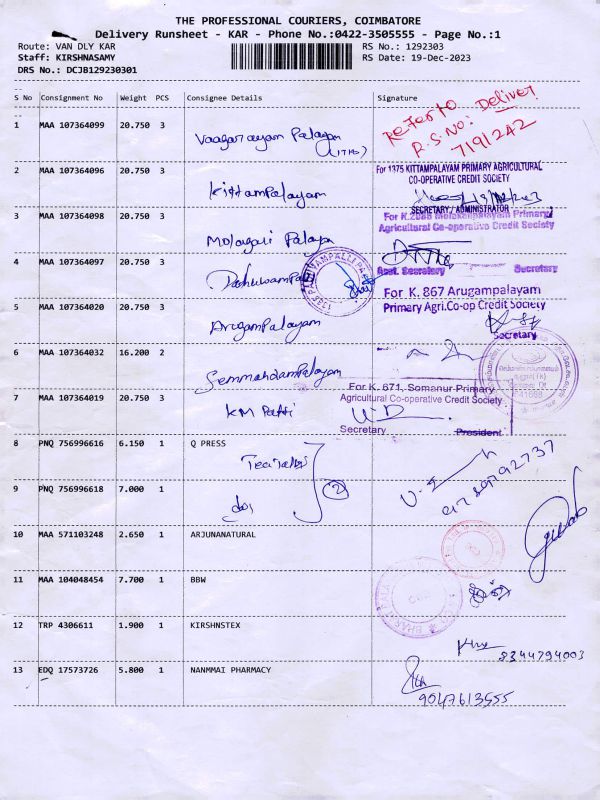 THE PROFESSIONAL COURIERS, COIMBATORE
Delivery Runsheet - KAR - Phone No.:0422-3505555 - Page No.:1
Route: VAN DLY KAR
RS No.: 1292303
Staff: KIRSHNASAMY
RS Date: 19-Dec-2023
DRS No.: DCJB129230301
S No Consignment No Weight PCS Consignee Details Signature
1 MAA 107364099 20.750 3
Refer to Deliver
R.S.No:
7191242
2 MAA 107364096 20.750 3 Kittampalayam
For 1375 KITTAMPALAYAM PRIMARY AGRICULTURAL
CO-OPERATIVE CREDIT SOCIETY
SECRETARY / ADMINISTRATOR
3 MAA 107364098 20.750 3
Primary
Agricultural Co-operative Credit Society
4 MAA 107364097 20.750 3
Asst. Secretary Secretary
For K. 867 Arugampalayam
Primary Agri.Co-op Credit Society
5 MAA 107364020 20.750 3 Arugampalayam
Secretary
6 MAA 107364032 16.200 2
7 MAA 107364019 20.750 3 KM Patti
For K. 671, Somanur Primary
Agricultural Co-operative Credit Society
Secretary President
8 PNQ 756996616 6.150 1 Q PRESS
9 PNQ 756996618 7.000 1
2
10 MAA 571103248 2.650 1 ARJUNANATURAL
11 MAA 104048454 7.700 1 BBW
12 TRP 4306611 1.900 1 KIRSHNSTEX
8344794003
13 EDQ 17573726 5.800 1 NANMMAI PHARMACY
9047613555